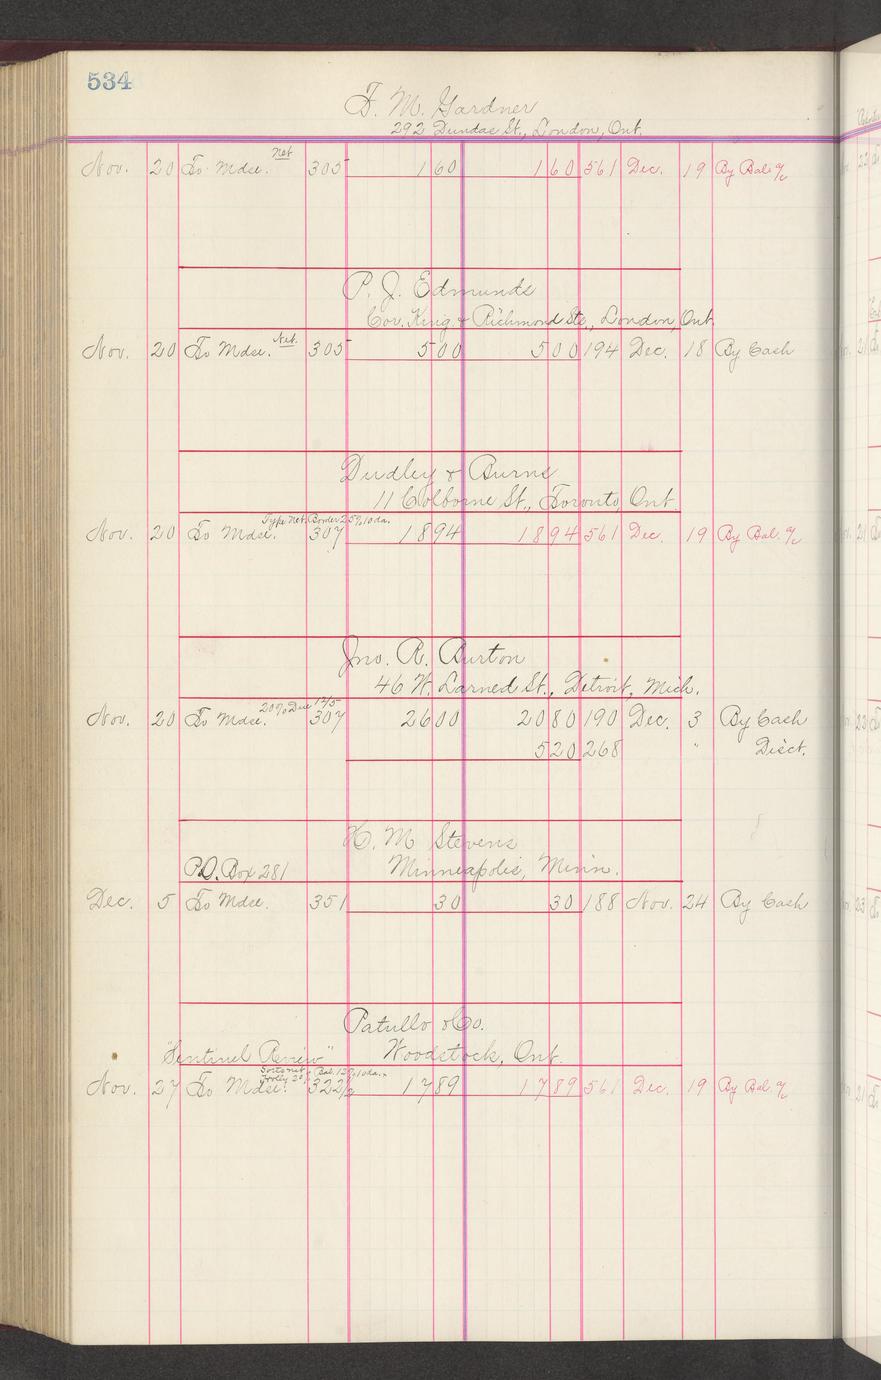 534
F. M. Gardner
292 Dundas St., London, Ont.
Nov. 20 To Mdse. Net 305 1 60 1 60 561 Dec. 19 By Bal a/c
P. J. Edmunds
Cor. King & Richmond Sts., London, Ont.
Nov. 20 To Mdse. Net. 305 5 00 5 00 194 Dec. 18 By Cash
Dudley & Burns
11 Colborne St., Toronto, Ont.
Type Net. Border 25% 10 da.
Nov. 20 To Mdse. 307 18 94 18 94 561 Dec. 19 By Bal. a/c
Jno. R. Burton
46 W. Larned St., Detroit, Mich.
20% Due 12/5
Nov. 20 To Mdse. 307 26 00 20 80 190 Dec. 3 By Cash
5 20 268 " Disct.
H. M Stevens
P.O. Box 281 Minneapolis, Minn.
Dec. 5 To Mdse. 351 30 30 188 Nov. 24 By Cash
Patullo & Co.
"Sentinel Review" Woodstock, Ont.
Sorts net Bal. 12% 10 da.
Nov. 27 To Mdse. 322 1/2 17 89 17 89 561 Dec. 19 By Bal. a/c